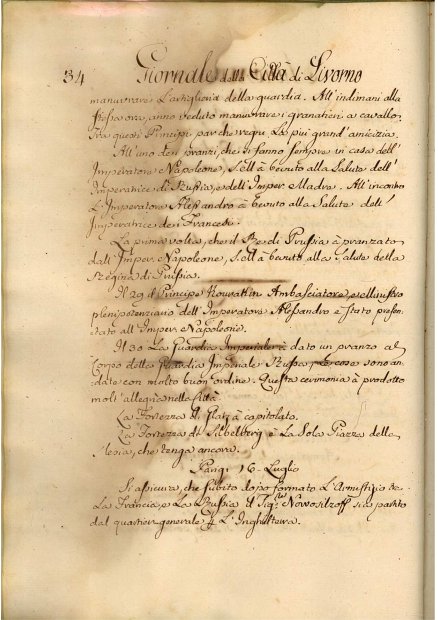 34 Giornale della Città di Livorno
manuvrare l'artiglieria della guardia. All'indimani alla
stess'ora, anno veduto manuvrare i granatieri a cavallo.
Tra questi Principi par che regni la più grand'amicizia.
All'uno dei pranzi, che si fanno sempre in casa dell'
Imperatore Napoleone, S.M. à bevuto alla Salute dell'
Imperatrice di Russia, e dell'Imper. Madre. All'incontro
L'Imperatore Alessandro à bevuto alla Salute dell'
Imperatrice dei Francesi.
La prima volta, che il Re di Prussia à pranzato
dall'Imper. Napoleone, S.M. à bevuto alla Salute della
Regina di Prussia.
Il 29 il Principe Kourakin Ambasciatore, e Ministro
plenipotenziario dell'Imperatore Alessandro è stato presen-
tato all'Imper. Napoleone.
Il 30 La Guardia Imperiale à dato un pranzo al
Corpo della Guardia Imperiale Russa le cose sono an-
date con molto buon'ordine. Questa cerimonia à prodotto
molt'allegria nella Città.
La Fortezza di Glatz à capitolato.
La Fortezza di Silbelberg è La Sola Piazza della
Slesia, che tenga ancora.
Parigi 16 Luglio
Si assicura, che subito dopo formato L'Armistizio tra
La Francia, e La Prussia il Sig.r Nowosilzoff sia partito
dal quartier generale p L'Inghilterra.